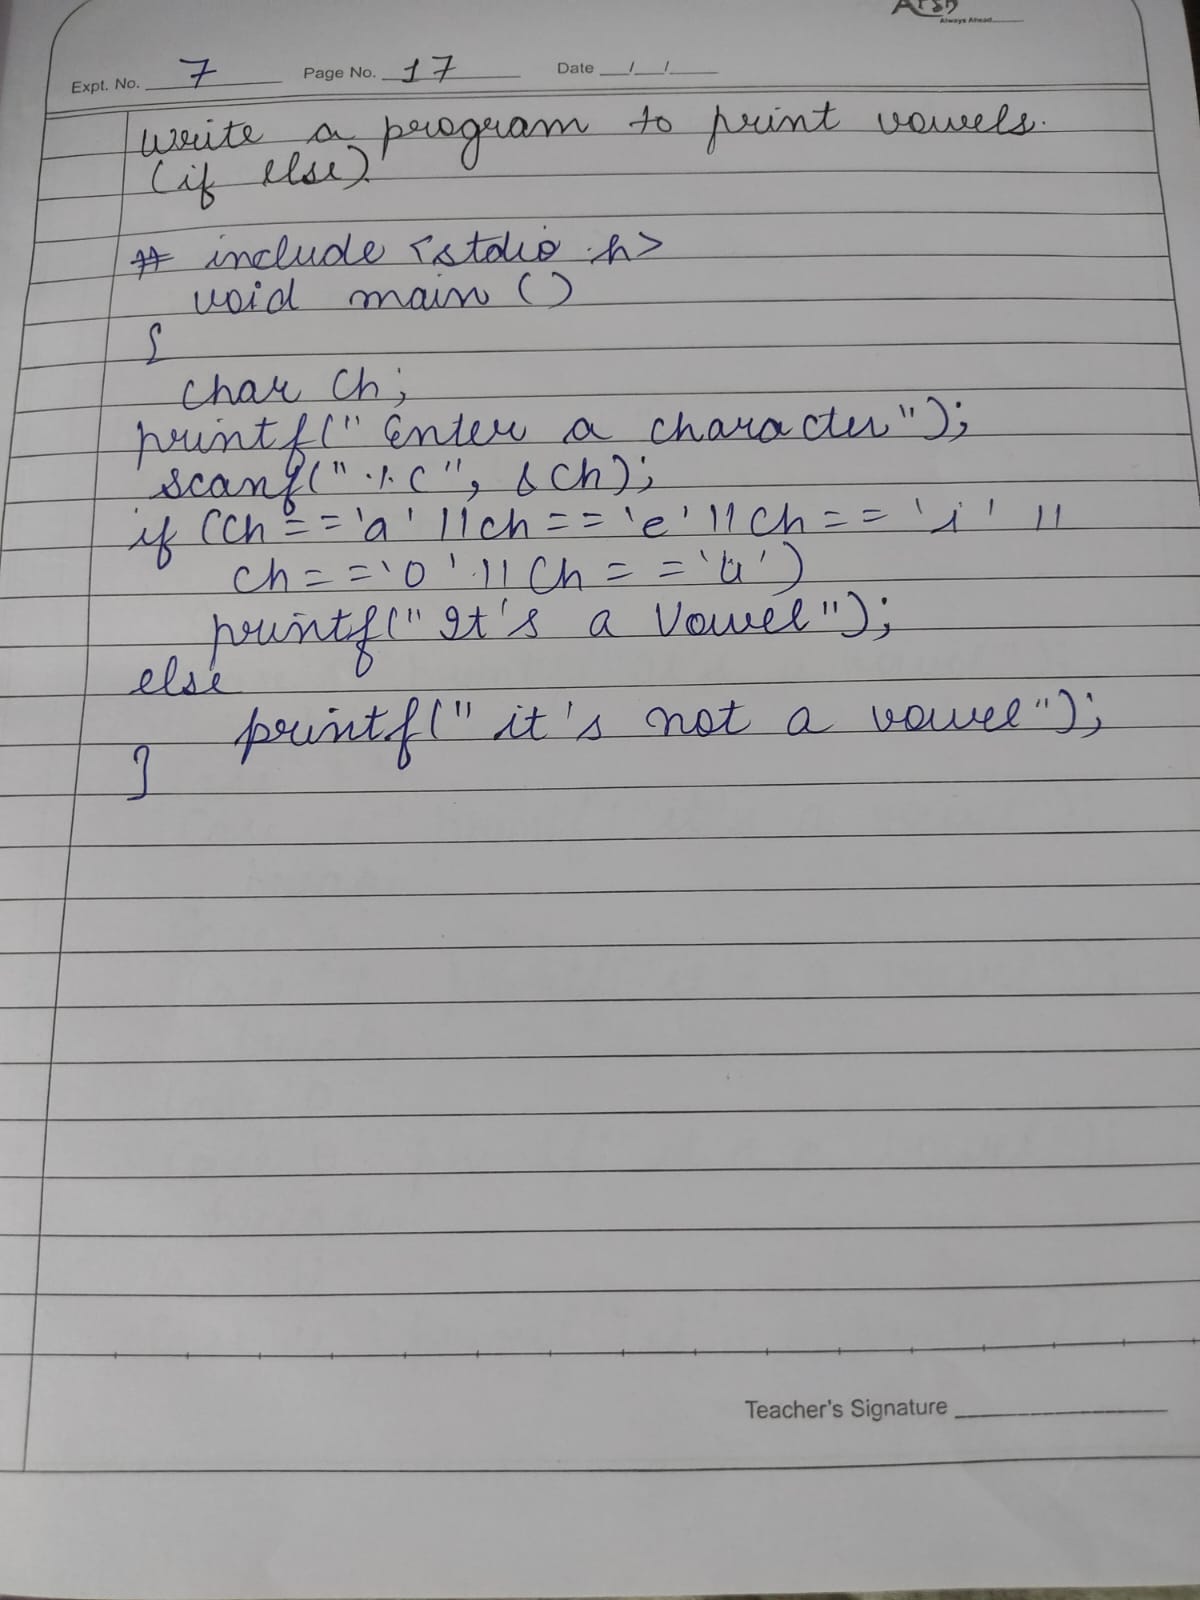 Arsh
Always Ahead
Expt. No. 7 Page No. 17 Date / /
Write a program to print vowels.
(if else)
# include <stdio.h>
void main ()
{
char ch;
printf(" Enter a character");
scanf("%c", &ch);
if (ch=='a' ||ch=='e'||ch=='i' ||
ch=='o'||ch=='u')
printf(" It's a Vowel");
else
printf(" it's not a vowel");
}
Teacher's Signature